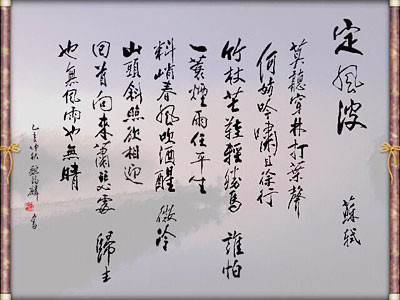 定風波
蘇軾
莫聽穿林打葉聲
何妨吟嘯且徐行
竹杖芒鞋輕勝馬 誰怕
一蓑煙雨任平生
料峭春風吹酒醒 微冷
山頭斜照卻相迎
回首向來蕭瑟處 歸去
也無風雨也無晴
仲秋 書